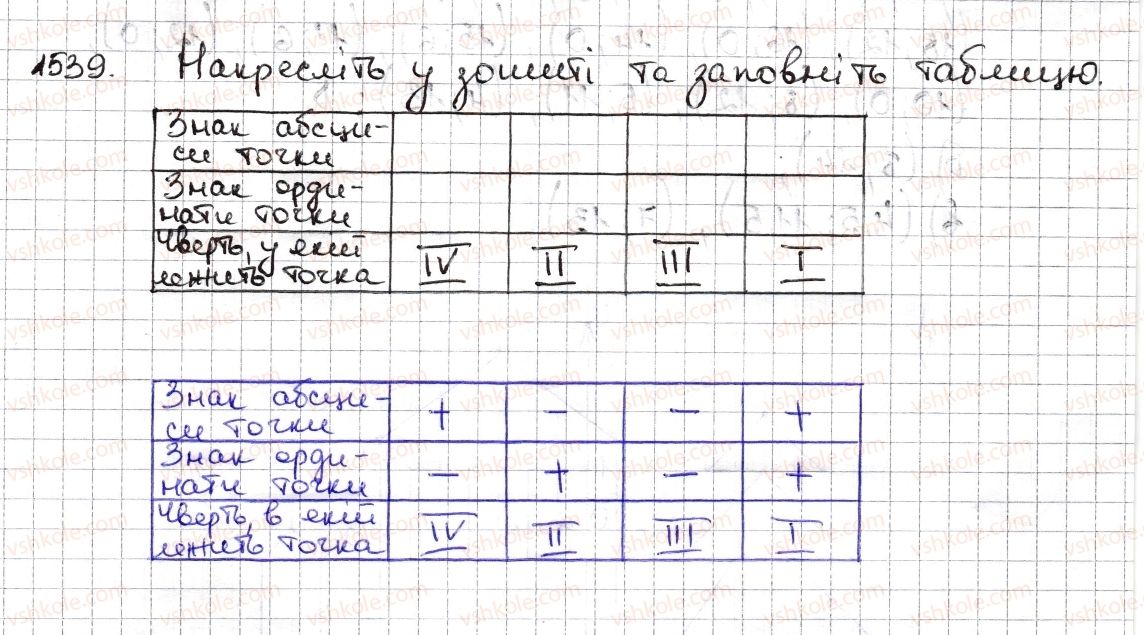 1539. Накресліть у зошиті та заповніть таблицю.
Знак абсци-
си точки
Знак орди-
нати точки
Чверть, у якій
лежить точка IV II III I
Знак абсци-
си точки + - - +
Знак орди-
нати точки - + - +
Чверть, в якій
лежить точка IV II III I
vshkole.com